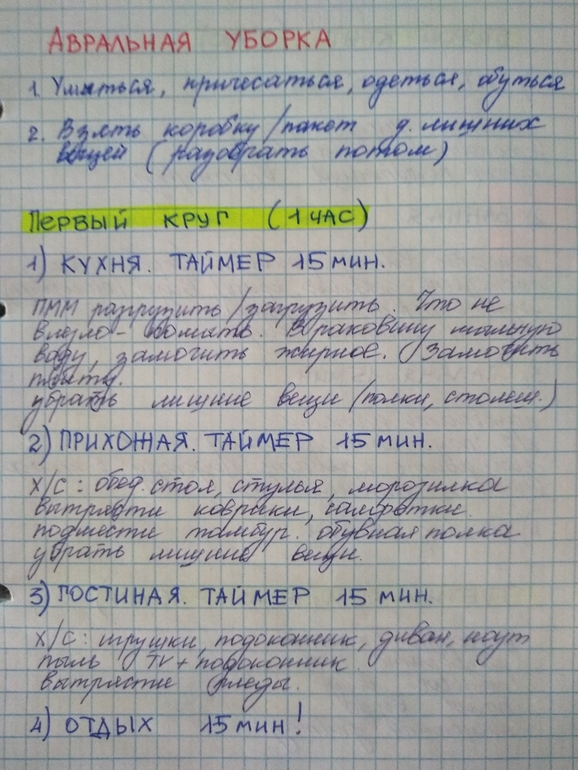 АВРАЛЬНАЯ УБОРКА
1. Умыться, причесаться, одеться, обуться
2. Взять коробку/пакет д. лишних
вещей (разобрать потом)
ПЕРВЫЙ КРУГ (1 ЧАС)
1) КУХНЯ. ТАЙМЕР 15 МИН.
ПММ разгрузить/загрузить. Что не
влезло - В раковину мыльную
воду, замочить жирное. Замочить
плиту.
убрать лишние вещи (полки, столеш.)
2) ПРИХОЖАЯ. ТАЙМЕР 15 МИН.
Х/С: обед. стол, стулья, морозилка
вытрясти коврики, салфетки.
подмести тамбур. обувная полка
убрать лишние вещи.
3) ГОСТИНАЯ. ТАЙМЕР 15 МИН.
Х/С: игрушки, подоконник, диван, ноут
пыль TV + подоконник
вытрясти пледы.
4) ОТДЫХ 15 МИН!